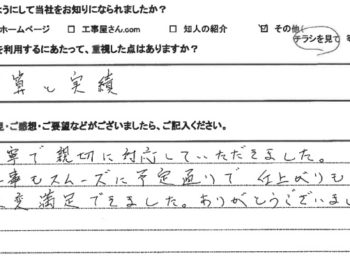 ようにして当社をお知りになられましたか?
ホームページ □ 工事屋さん.com □ 知人の紹介 ☑ その他( チラシを見て
を利用するにあたって、重視した点はありますか?
算と実績
見・ご感想・ご要望などがございましたら、ご記入ください。
寧で親切に対応していただきました。
事もスムーズに予定通りで仕上がりも
変満足できました。ありがとうございまし